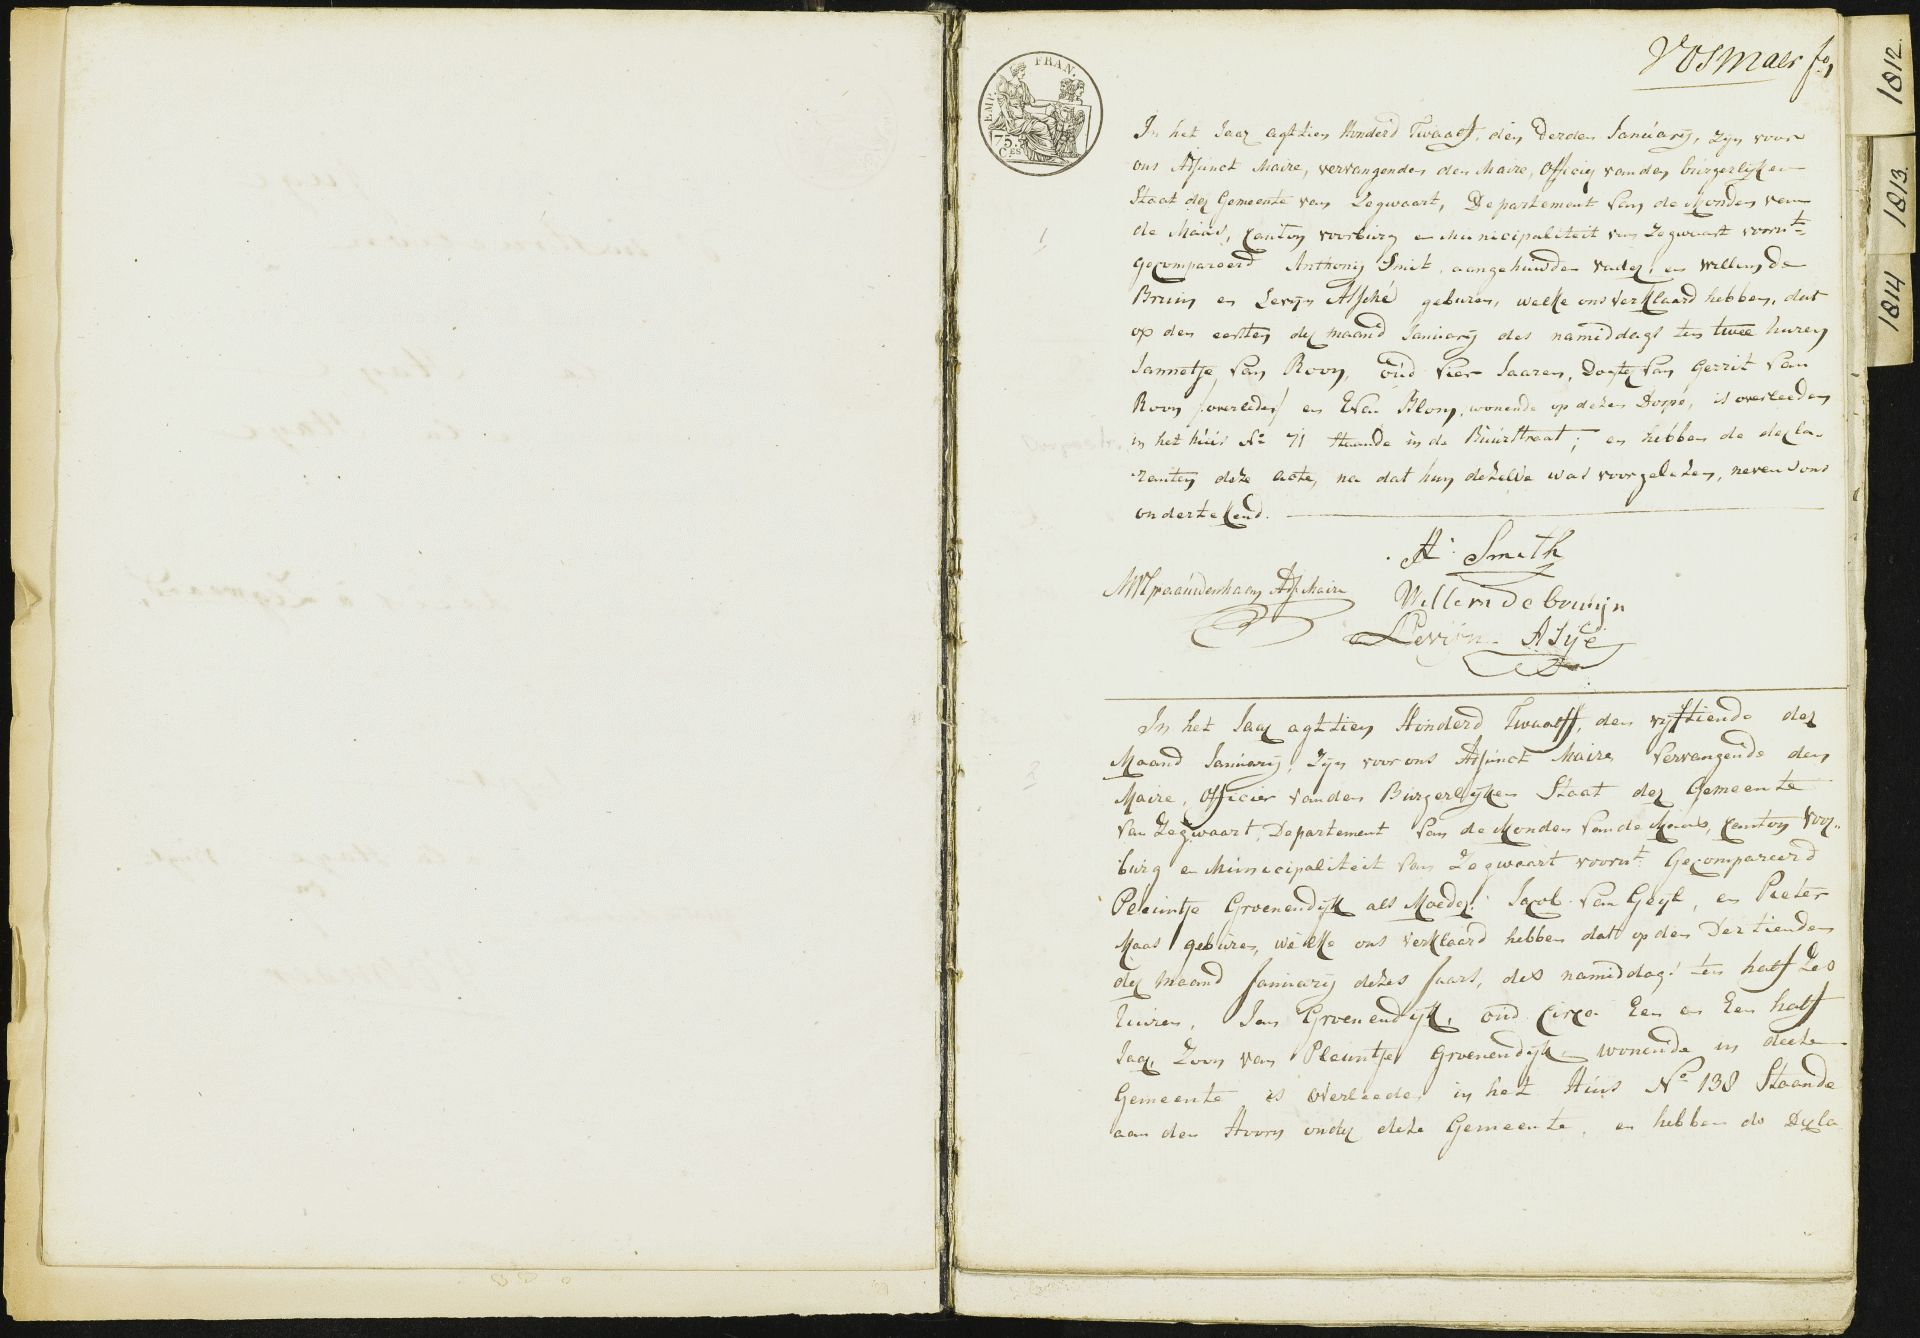 Vosmaer fo 1
1812.
1813.
1814
EMP. FRAN.
75. Ces
In het Jaar agttien Honderd Twaalf, den derden Januarij, zijn voor
ons Adjunct Maire, vervangenden den Maire, Officier van den burgerlijken
Staat der Gemeente van Zegwaart, Departement van de Monden van
1
de Maas, Canton voorburg en Municipaliteit van Zegwaart voornt
gecompareerd Anthonij Smit, aangehuwden vader, en Willem de
Bruin en Levijn Assché geburen, welke ons verklaard hebben, dat
op den eersten der maand Januarij des namiddags ten twee huren
Jannetje van Rooy, oud vier Jaaren, Dogter van Gerrit van
Rooy /overleden/ en Eva Blom, wonende op dezen Dorpe, is overleeden
in het huis No 71 staande in de Buurstraat; en hebben de decla-
ranten deze acte, na dat hun dezelve was voorgelezen, nevens ons
ondertekend.
A: Smith
Adj Maire
Willem de bruijn
Levijn Asyé
In het Jaar agttien Honderd Twaalf, den vyftiende der
Maand Januarij, Zijn voor ons Adjunct Maire vervangende den
2
Maire, Officier van den Burgerlijken Staat der Gemeente
van Zegwaart, Departement van de Monden van de Maas, Canton Voor-
burg en Municipaliteit van Zegwaart voornt Gecompareerd
Pleuntje Groenendijk als Moeder: Jacob van Geyt, en Pieter
Maas geburen, welke ons verklaard hebben dat op den Dertienden
der maand Januarij dezes Jaars, des namiddags ten half Zes
huuren, Jan Groenendijk, oud circa Een en Een half
Jaar, Zoon van Pleuntje Groenendijk wonende in deeze
Gemeente is overleeden in het Huis No 138 Staande
aan den Hoorn onder deze Gemeente, en hebben de Decla